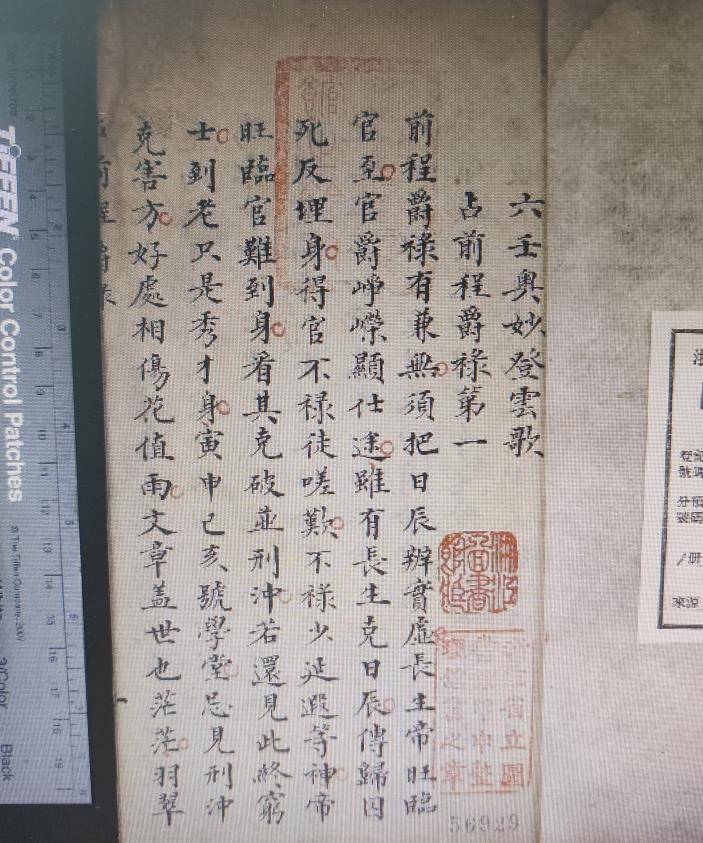 六壬奥妙登雲歌
占前程爵祿第一
前程爵祿有兼無須把日辰辨實虛長生帝旺臨
官至官爵崢嶸顯仕途雖有長生克日辰傳歸囚
死反埋身得官不祿徒嗟歎不祿少延遐等神帝
旺臨官難到身看其克破並刑沖若還見此終窮
士到老只是秀才身寅申已亥號學堂忌見刑沖
克害方好處相傷花值雨文章盖世也茫茫羽翠
前程
56929
TIFFEN Color Control Patches
© The Tiffen Company, 2007
3/Color
Black
登記
號碼
分類
號碼
/冊
來源